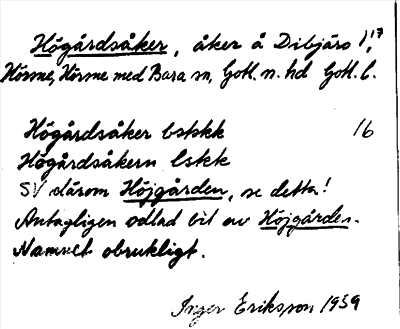 Högårdsåker, åker å Dibjärs 1,17
Hörsne, Hörsne med Bara sn, Gotl. n. hd Gotl. l.
Högårdsåker bskk 16
Högårdsåkern lskk
SV därom Höjgården, se detta!
Antagligen odlad bit av Höjgården.
Namnet obrukligt.
Inger Eriksson 1939